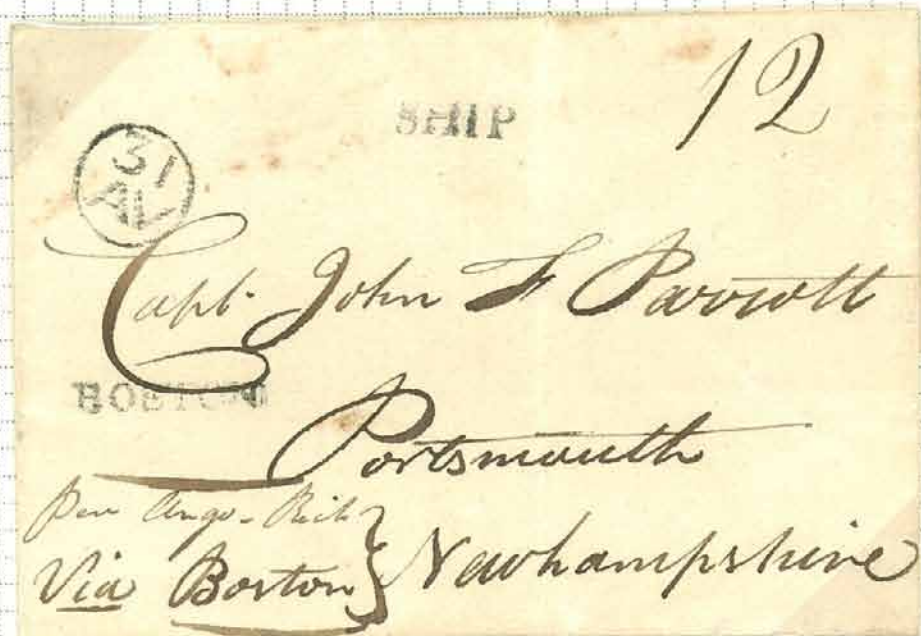 SHIP
12
31
AU
Capt. John F Parrott
BOSTON
Portsmouth
Per
Via Boston } Newhampshire